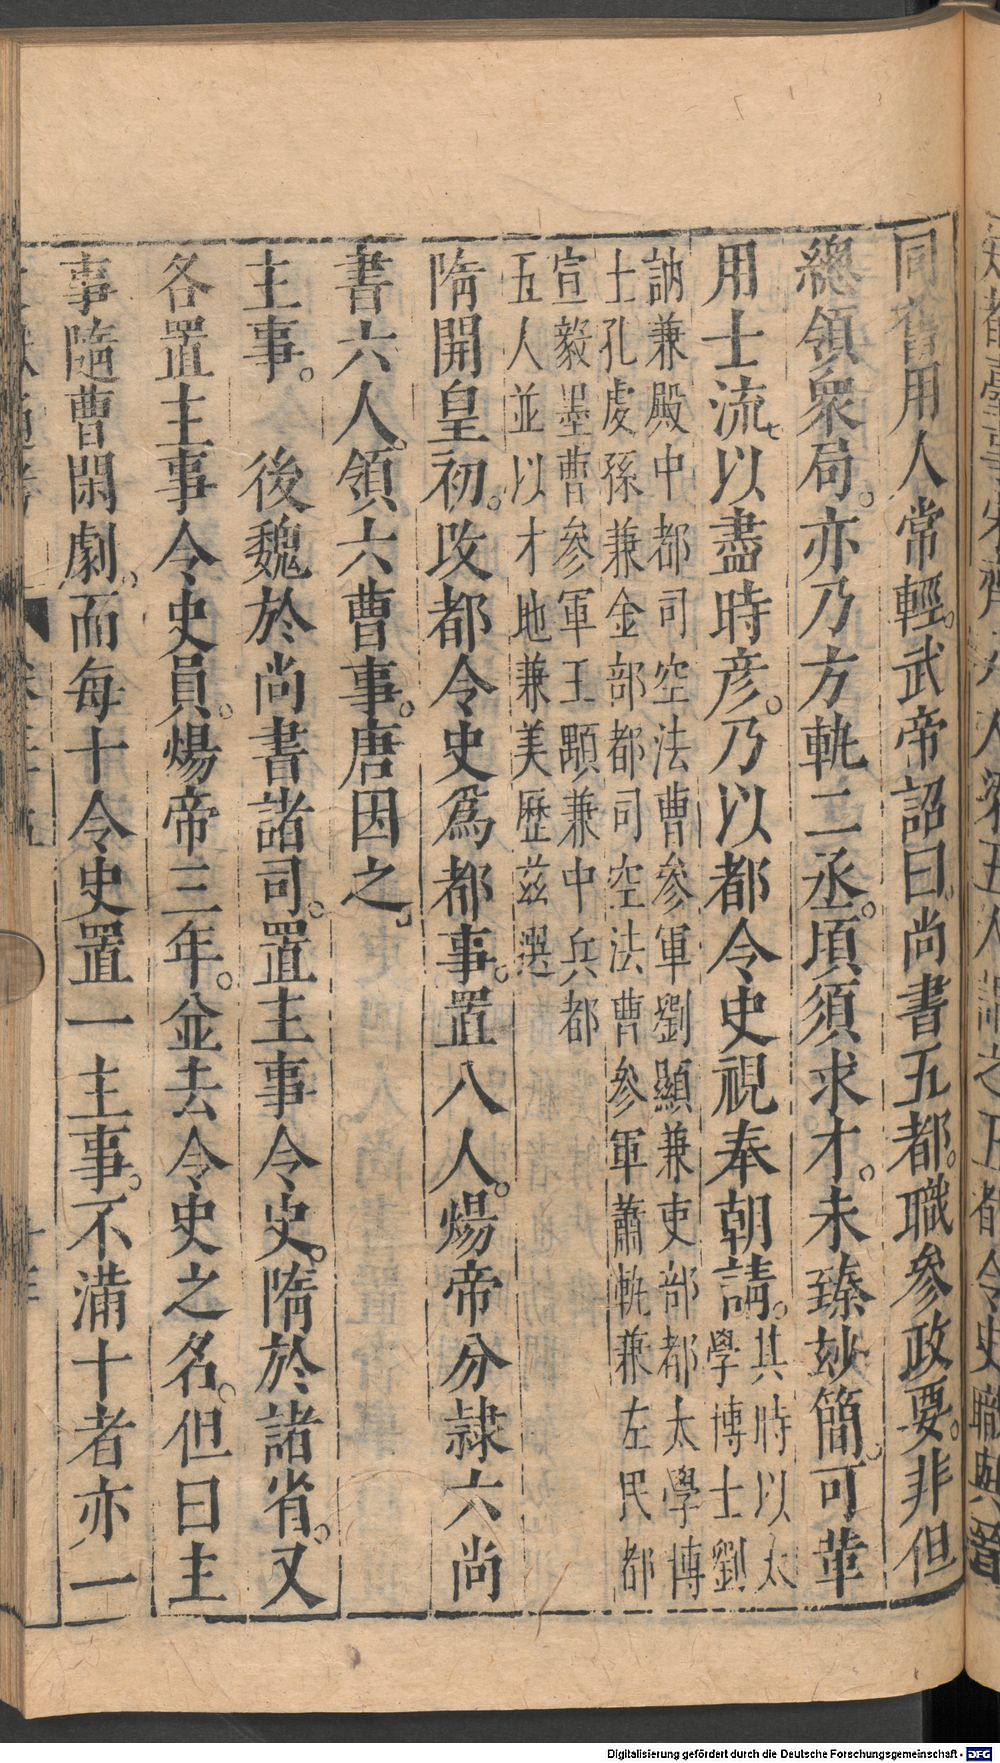 同舊用人常輕。武帝詔曰。尚書五都。職參政要。非但
總領衆局。亦乃方軌二丞。頃須求才。未臻妙簡。可革
用士流。以盡時彦。乃以都令史視奉朝請。其時以太
學博士劉
訥兼殿中都司空法曹參軍劉顯兼吏部都太學博
士孔虔孫兼金部都司空法曹參軍蕭軌兼左民都
宣毅墨曹參軍王顒兼中兵都
五人並以才地兼美歷兹選
隋開皇初。改都令史爲都事。置八人。煬帝分隷六尚
書六人。領六曹事。唐因之。
主事。 後魏於尚書諸司。置主事令史。隋於諸省。又
各置主事令史員。煬帝三年。並去令史之名。但曰主
事隨曹閑劇。而每十令史置一主事。不滿十者亦一
Digitalisierung gefördert durch die Deutsche Forschungsgemeinschaft - DFG